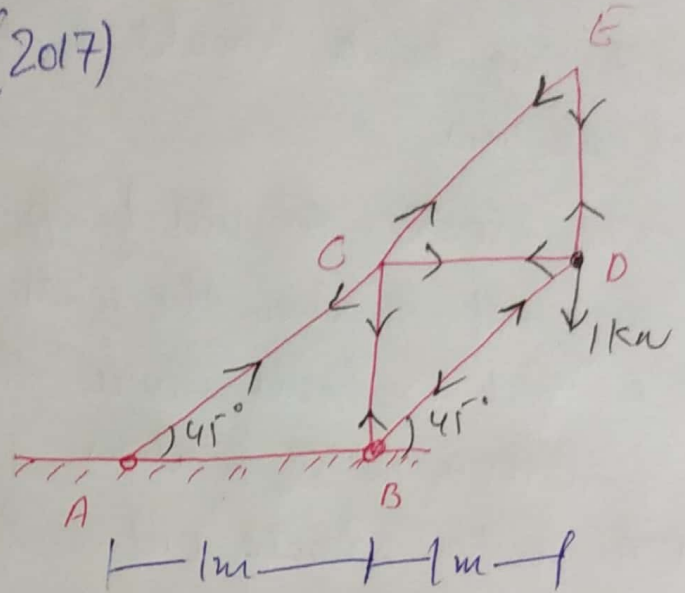 (2017)
E
C
D
1kN
45°
45°
A
B
1m
1m